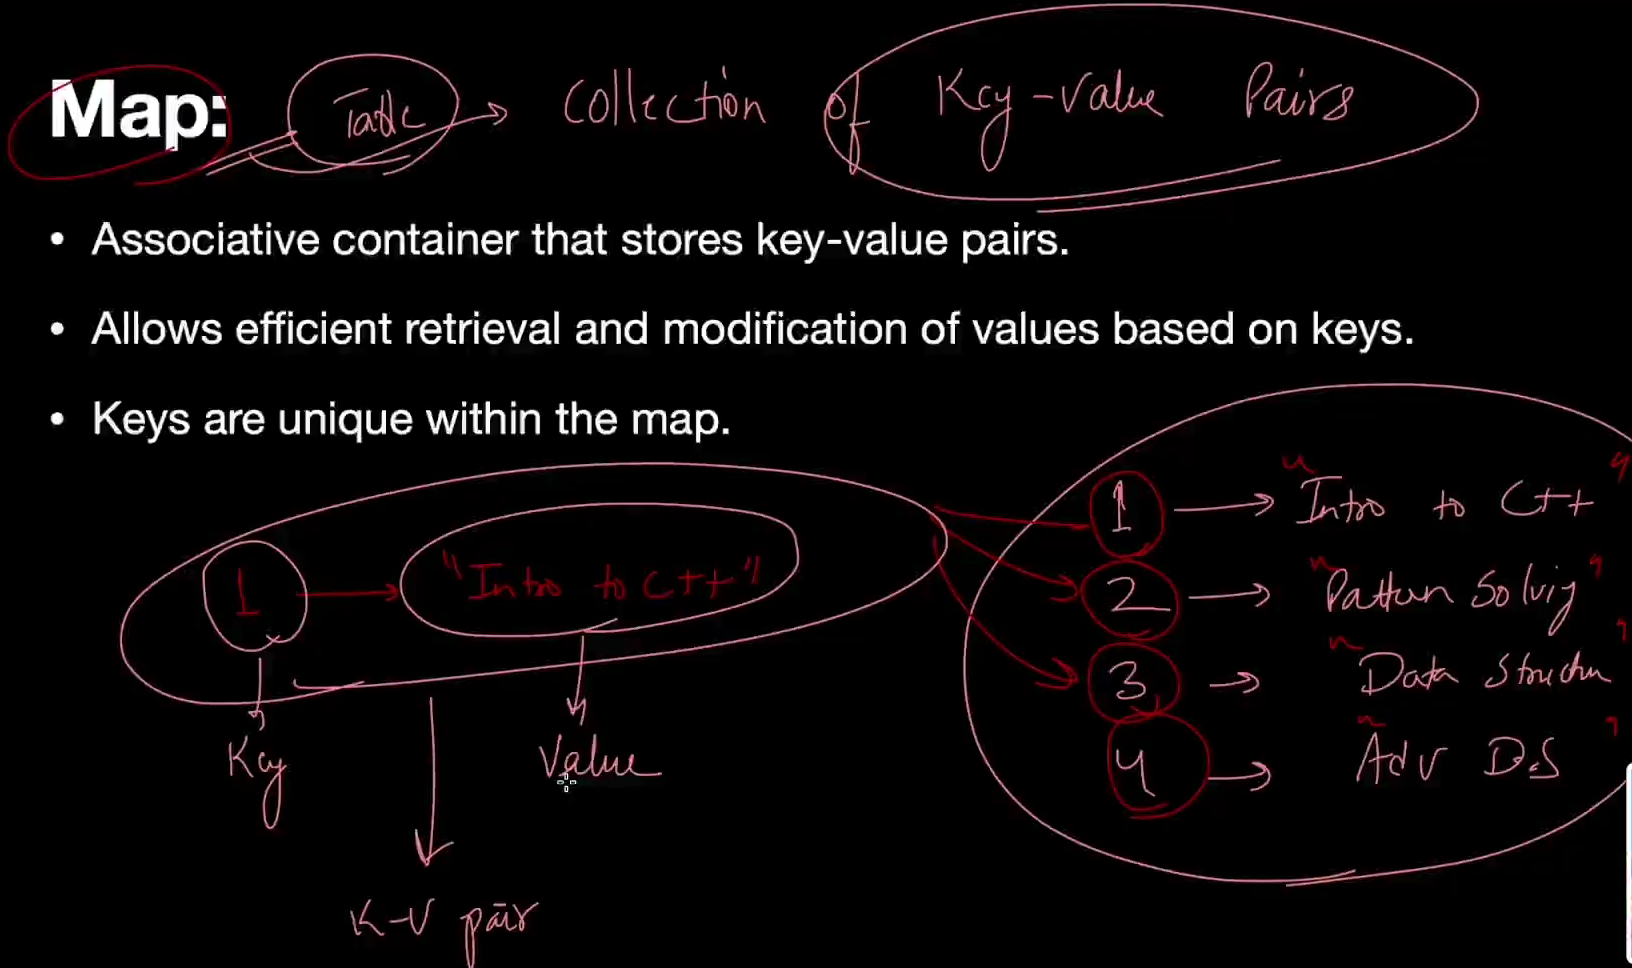 Map: Table → Collection of Key-Value Pairs
• Associative container that stores key-value pairs.
• Allows efficient retrieval and modification of values based on keys.
• Keys are unique within the map.
1 → "Intro to C++"
Key
Value
K-V pair
1 → "Intro to C++"
2 → "Pattern Solvig"
3 → "Data
4 → "Adv D.S"